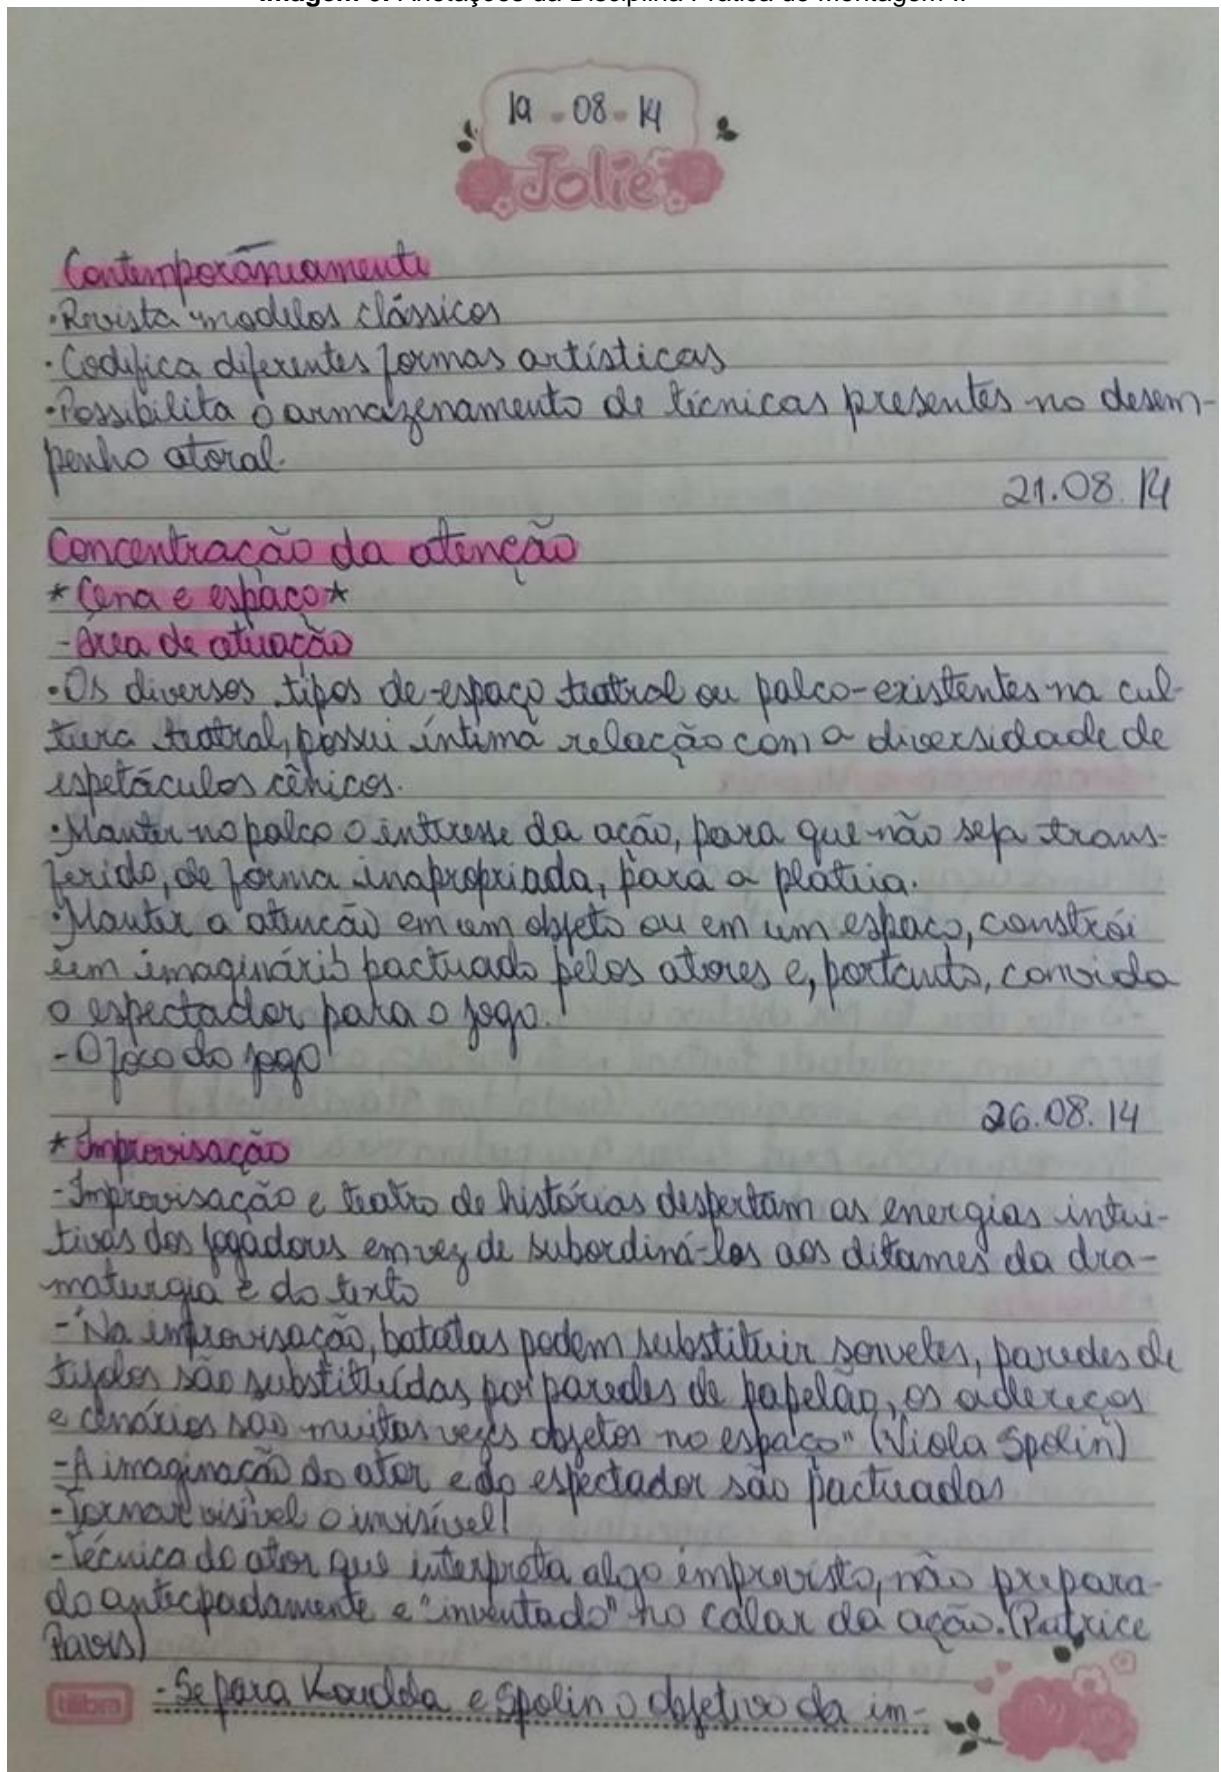 19-08-14
Jolie
Contemporâneamente
•Revista modelos clássicos
•Codifica diferentes formas artísticas
•Possibilita o armazenamento de técnicas presentes no desem-
penho atoral.
21.08.14
Concentração da atenção
*Cena e espaço*
-Área de atuação
•Os diversos tipos de espaço teatral ou palco-existentes na cul-
tura teatral, possui íntima relação com a diversidade de
espetáculos cênicos.
•Manter no palco o interesse da ação, para que não seja trans-
ferido, de forma inapropriada, para a platéia.
•Manter a atenção em um objeto ou em um espaço, constrói
um imaginário pactuado pelos atores e, portanto, convida
o espectador para o jogo.
-O foco do jogo
26.08.14
*Improvisação
-Improvisação e teatro de histórias despertam as energias intui-
tivas dos jogadores em vez de subordiná-las aos ditames da dra-
maturgia e do texto
-"Na improvisação, batatas podem substituir sorvetes, paredes de
tijolos são substituídas por paredes de papelão, os adereços
e cenários são muitas vezes objetos no espaço" (Viola Spolin)
-A imaginação do ator e do espectador são pactuadas
-Tornar visível o invisível!
-Técnica do ator que interpreta algo improvisto, não prepara-
do antecpadamente e "inventado" no calar da ação. (Patrice
Pavis)
tilibra
-Se para Koudela e Spolin o objetivo da im-